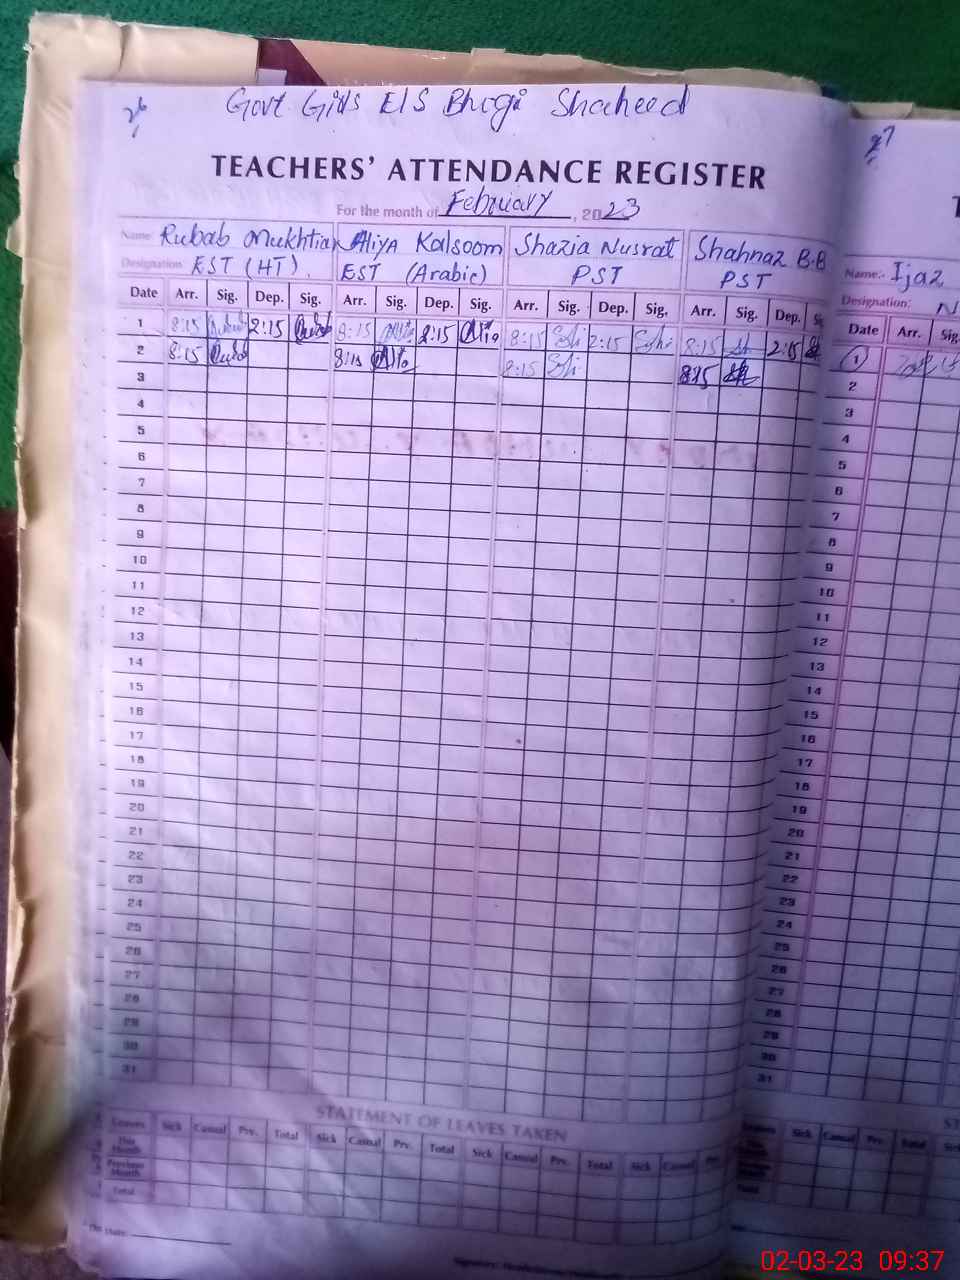 26
Govt Girls E/S Bhrgi Shaheed
TEACHERS' ATTENDANCE REGISTER
For the month of February, 2023
Name: Rubab Mukhtiar Aliya Kalsoom Shazia Nusrat Shahnaz B.B
Designation: EST (HT). EST (Arabic) PST PST
Date Arr. Sig. Dep. Sig. Arr. Sig. Dep. Sig. Arr. Sig. Dep. Sig. Arr. Sig. Dep. Sig
1 8:15 2:15 8:15 2:15 8:15 2:15 8:15 2:15
2 8:15 8:15 8:15 8:15
3
4
5
6
7
8
9
10
11
12
13
14
15
16
17
18
19
20
21
22
23
24
25
26
27
28
29
30
31
STATEMENT OF LEAVES TAKEN
Leaves Sick Casual Prv. Total Sick Casual Prv. Total Sick Casual Prv. Total Sick Casual Prv.
This Month
Previous Month
Total
27
T
Name:- Ijaz
Designation: N
Date Arr. Sig.
1
2
3
4
5
6
7
8
9
10
11
12
13
14
15
16
17
18
19
20
21
22
23
24
25
26
27
28
29
30
31
ST
Leaves Sick Casual Prv. Total Sick
Total
02-03-23 09:37